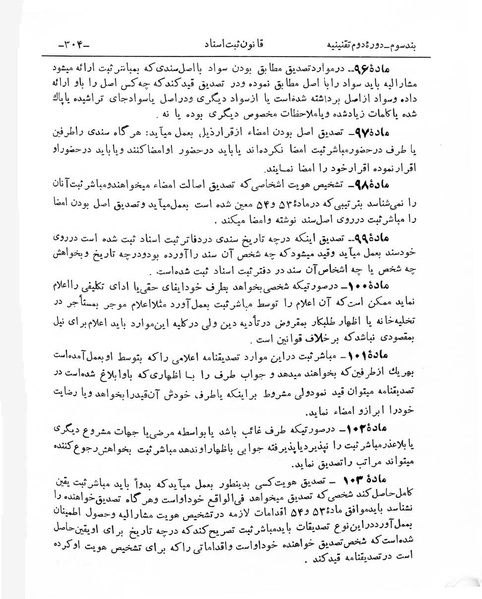 بند سوم ـ دورهٔ دوم تقنینیه
قانون ثبت اسناد
ـ۳۰۴ـ
مادهٔ ۹۶ـ در موارد تصدیق مطابق بودن سواد با اصل سندی که بمباشر ثبت ارائه میشود
مشارالیه باید سواد را با اصل مطابق نموده و در تصدیق قید کند که چه کس اصل را باو ارائه
داده و سواد از اصل برداشته شده است یا از سواد دیگری و در اصل یا سواد جای تراشیده یا پاک
شده یا کلمات زیاد شده و یا ملاحظات مخصوص دیگری بوده یا نه .
مادهٔ ۹۷ـ تصدیق اصل بودن امضاء از قرار ذیل بعمل میآید: هر گاه سندی را طرفین
یا طرف در حضور مباشر ثبت امضا نکرده اند یا باید در حضور او امضا کنند و یا باید در حضور او
اقرار نموده اقرار خود را امضا نمایند.
مادهٔ ۹۸ـ تشخیص هویت اشخاصی که تصدیق اصالت امضاء میخواهند و مباشر ثبت آنان
را نمی شناسد بترتیبی که در مادهٔ ۵۳ و ۵۴ معین شده است بعمل میآید و تصدیق اصل بودن امضا
را مباشر ثبت در روی اصل سند نوشته و امضا میکند .
مادهٔ ۹۹ـ تصدیق اینکه در چه تاریخ سندی در دفاتر ثبت اسناد ثبت شده است در روی
خود سند بعمل میآید و قید میشود که چه شخص آن سند را آورده بود و در چه تاریخ و بخواهش
چه شخص یا چه اشخاص آن سند در دفتر ثبت اسناد ثبت شده است .
مادهٔ ۱۰۰ـ در صورتیکه شخصی بخواهد بطرف خود ایفای حقی یا ادای تکلیفی را اعلام
نماید ممکن است که آن اعلام را توسط مباشر ثبت بعمل آورد مثلا اعلام موجر بمستأجر در
تخلیه خانه یا اظهار طلبکار بمقروض در تأدیه دین ولی در کلیه این موارد باید اعلام برای نیل
بمقصودی نباشد که بر خلاف قوانین است .
مادهٔ ۱۰۱ـ مباشر ثبت در این موارد تصدیقنامه اعلامی را که بتوسط او بعمل آمده است
بهریک از طرفین که بخواهند میدهد و جواب طرف را با اظهاری که باو ابلاغ شده است در
تصدیقنامه میتوان قید نمود ولی مشروط بر اینکه یا طرف خودش آن قید را بخواهد و یا رضایت
خود را با بر از و امضاء نماید.
مادهٔ ۱۰۲ـ در صورتیکه طرف غائب باشد یا بواسطه مرضی یا جهات مشروع دیگری
یا بلاعذر مباشر ثبت را نپذیرد یا پذیرفته جوابی باظهار او ندهد مباشر ثبت بخواهش رجوع کننده
میتواند مراتب را تصدیق نماید.
مادهٔ ۱۰۳ ـ تصدیق هویت کسی بدینطور بعمل میآید که بدواً باید مباشر ثبت یقین
کامل حاصل کند شخصی که تصدیق میخواهد فی الواقع خود او است و هر گاه تصدیق خواهنده را
نشناسد باید موافق مادهٔ ۵۳ و ۵۴ اقدامات لازمه در تشخیص هویت مشارالیه و حصول اطمینان
بعمل آورد در این نوع تصدیقات باید مباشر ثبت تصریح کند که در چه تاریخ برای او یقین حاصل
شده است که شخص تصدیق خواهنده خود او است و اقداماتی را که برای تشخیص هویت او کرده
است در تصدیقنامه قید کند .